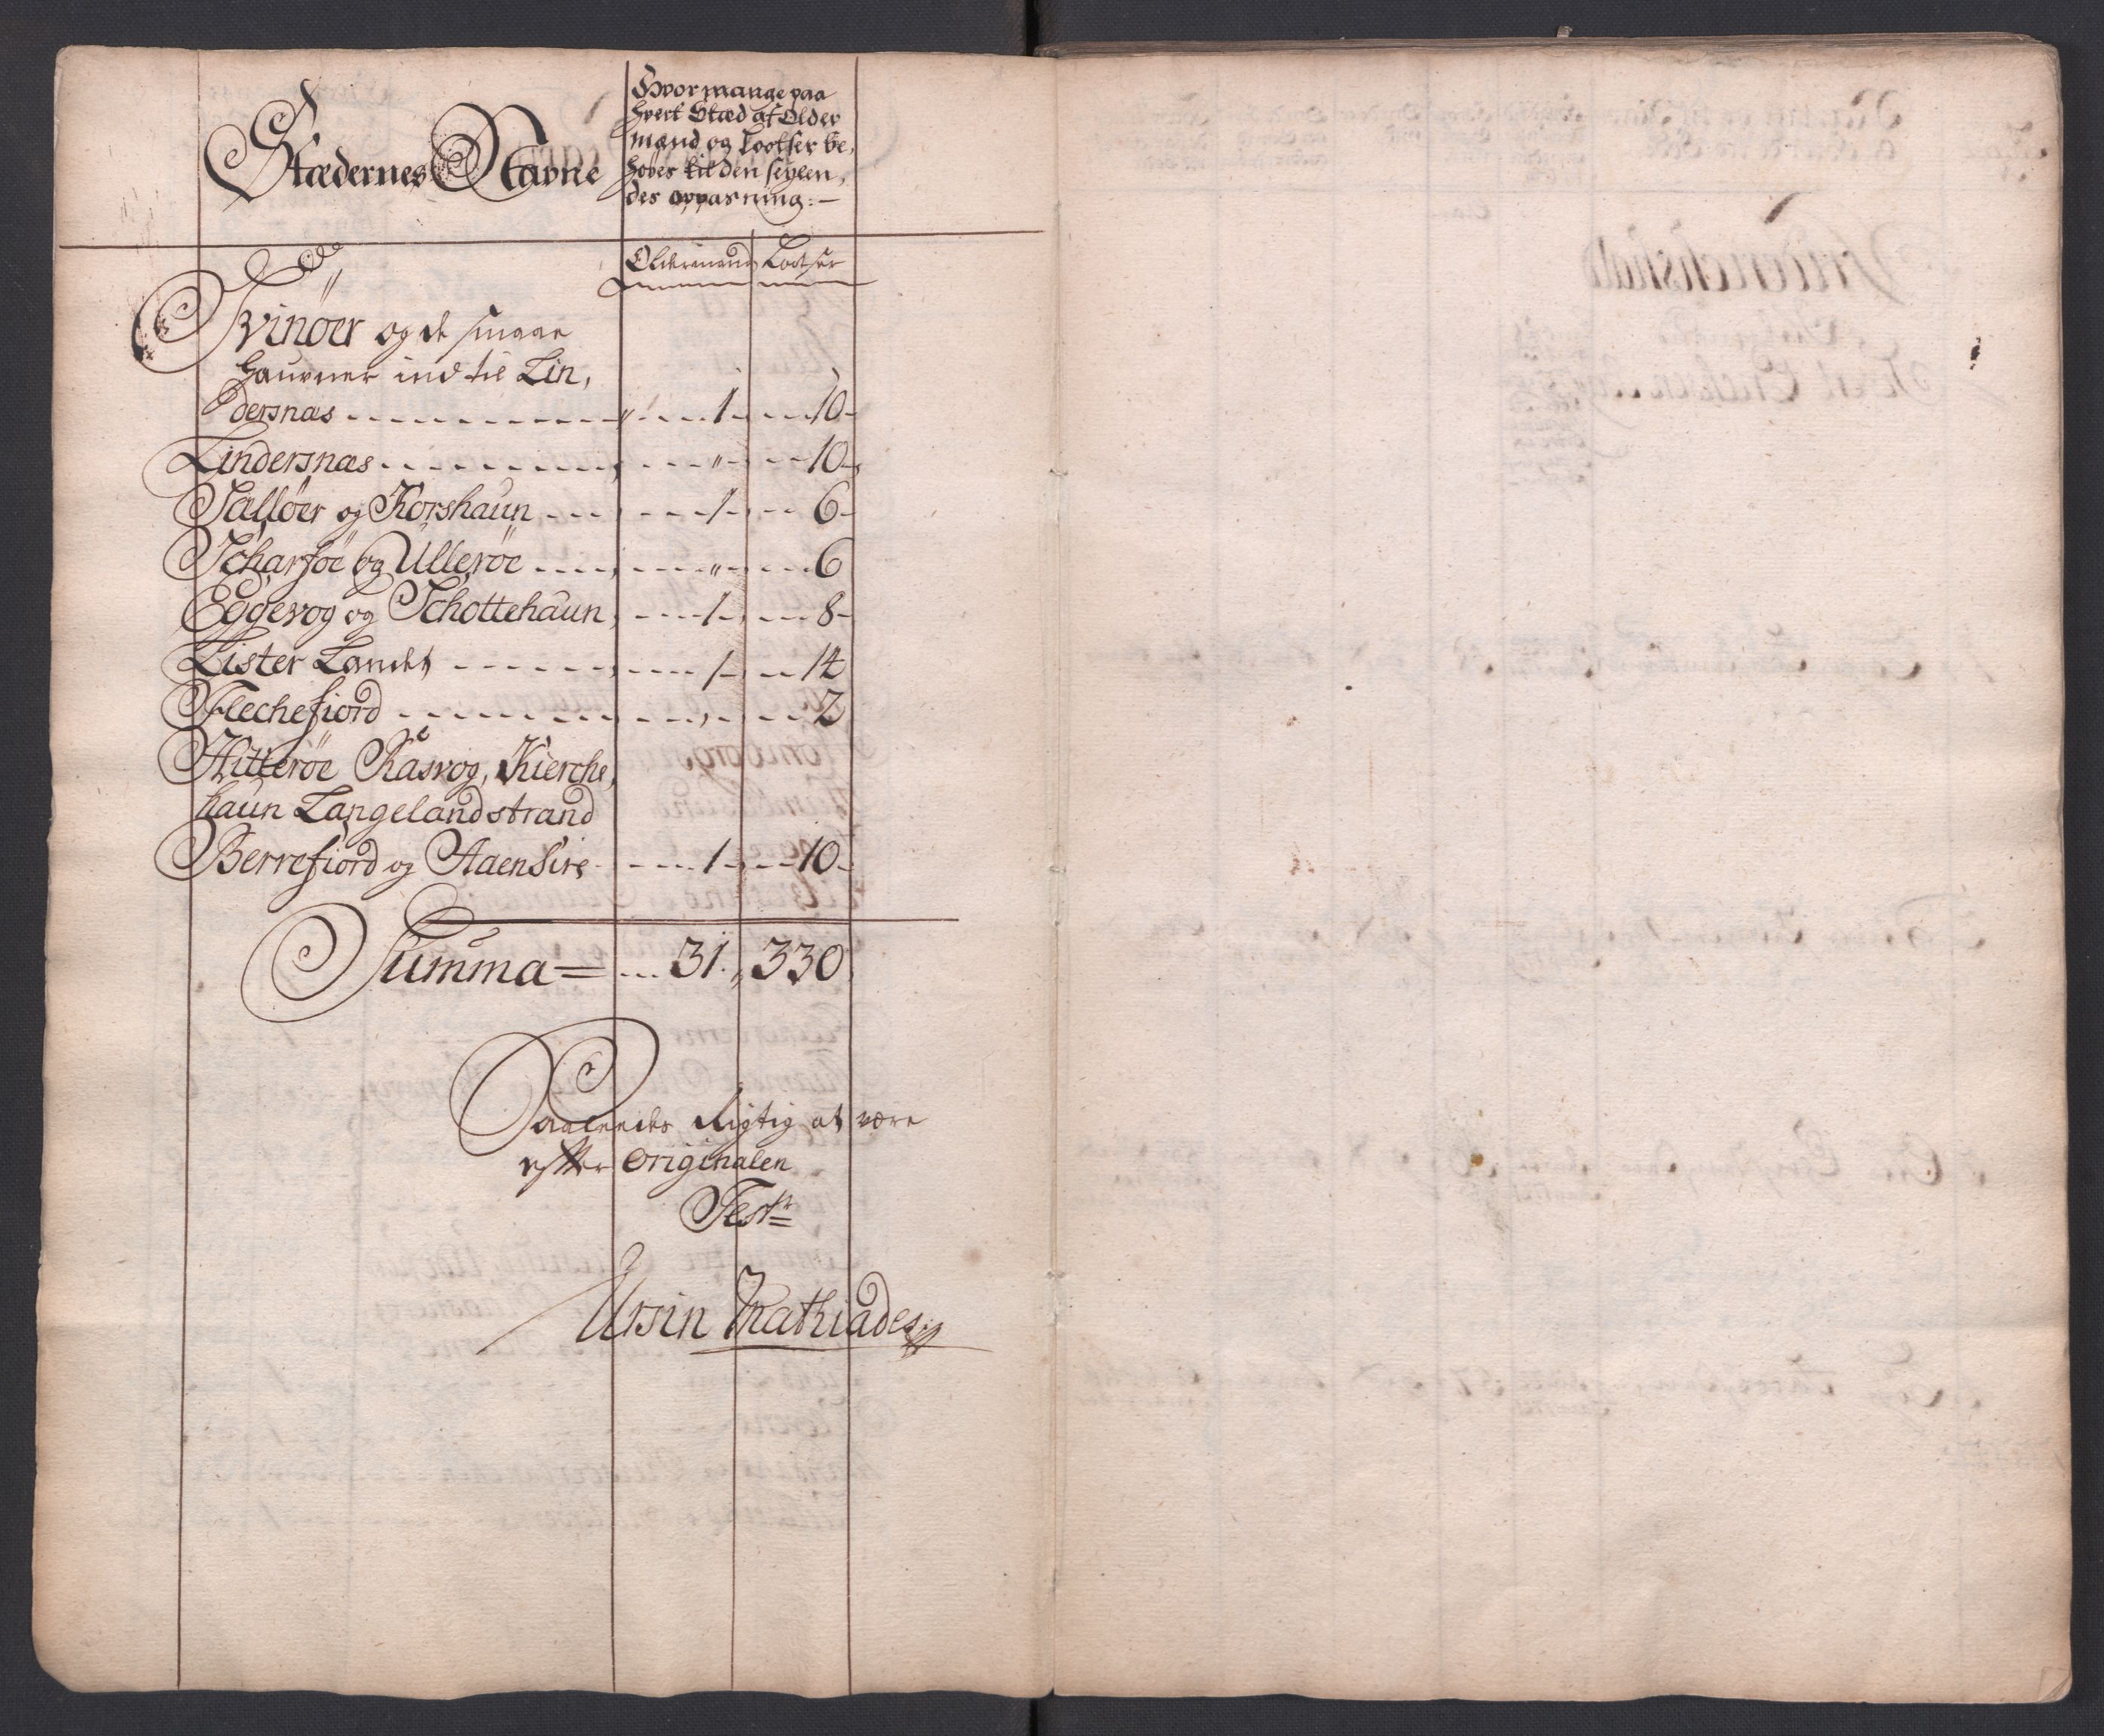 Stædernes Navne
Hvor mange paa
hvert Stæd af Older
mænd og Lootser be,
høves til den seylen,
des oppasning:—
Oldermænd Lootser
Svinöer og de smaae
Hauvner ind til Lin,
dersnæs 1 10
Lindersnæs " 10
Sællöer og Korshaun 1 6
Scharföe og Ulleröe " 6
Eggevog og Schottehaun 1 8
Lister Landet 1 14
Flechefiord 2
Hitteröe Rasvog, Kierche,
haun Langelandstrand
Berrefiord og Aaensire 1 10
Summa= 31. 330
Saaledes Rigtig at være
efter Originalen
Test:
Ursin Mathiades